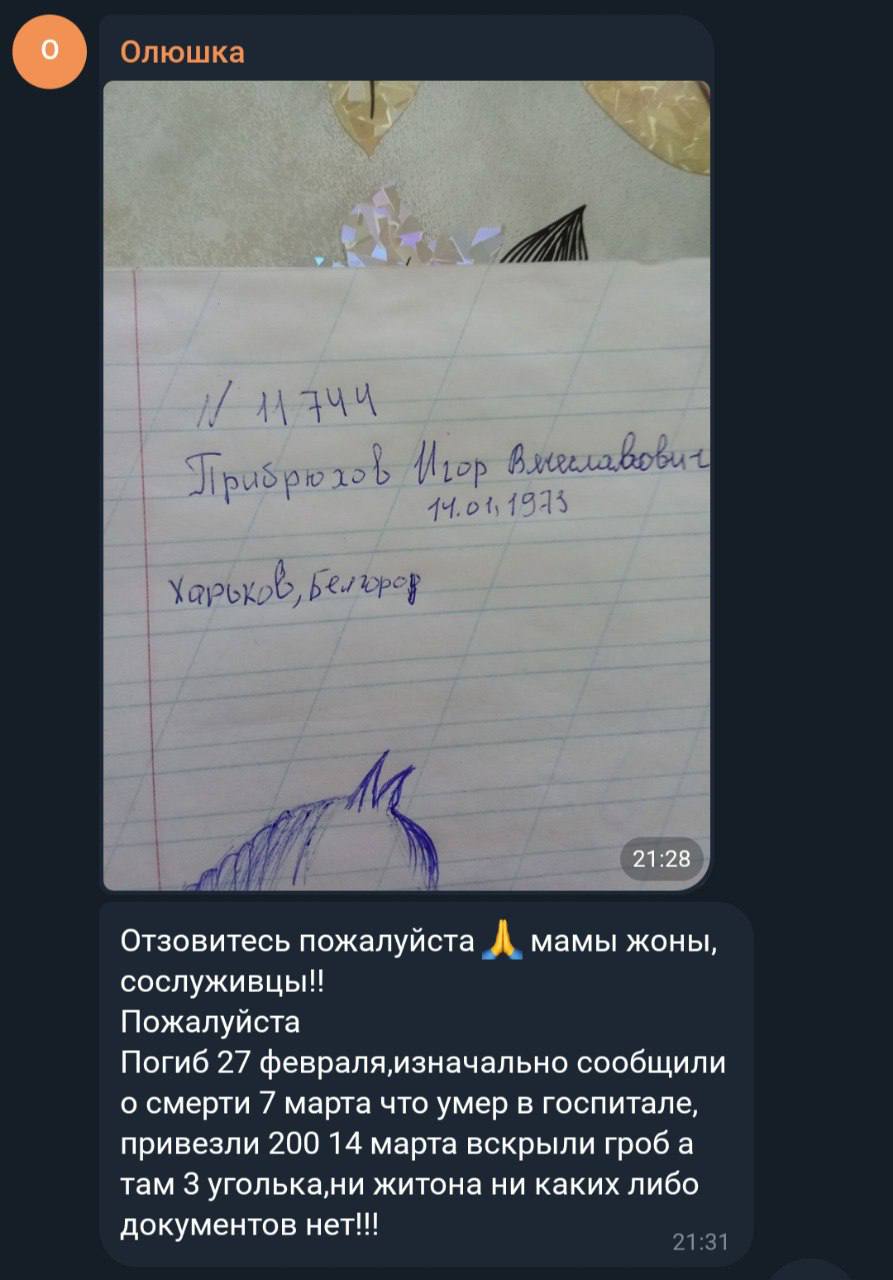 О
Олюшка
N 11744
Прибрюхов Игор Вячеславович
14.01.1973
Харьков, Белгород
21:28
Отзовитесь пожалуйста 🙏 мамы жоны,
сослуживцы!!
Пожалуйста
Погиб 27 февраля,изначально сообщили
о смерти 7 марта что умер в госпитале,
привезли 200 14 марта вскрыли гроб а
там 3 уголька,ни житона ни каких либо
документов нет!!!
21:31